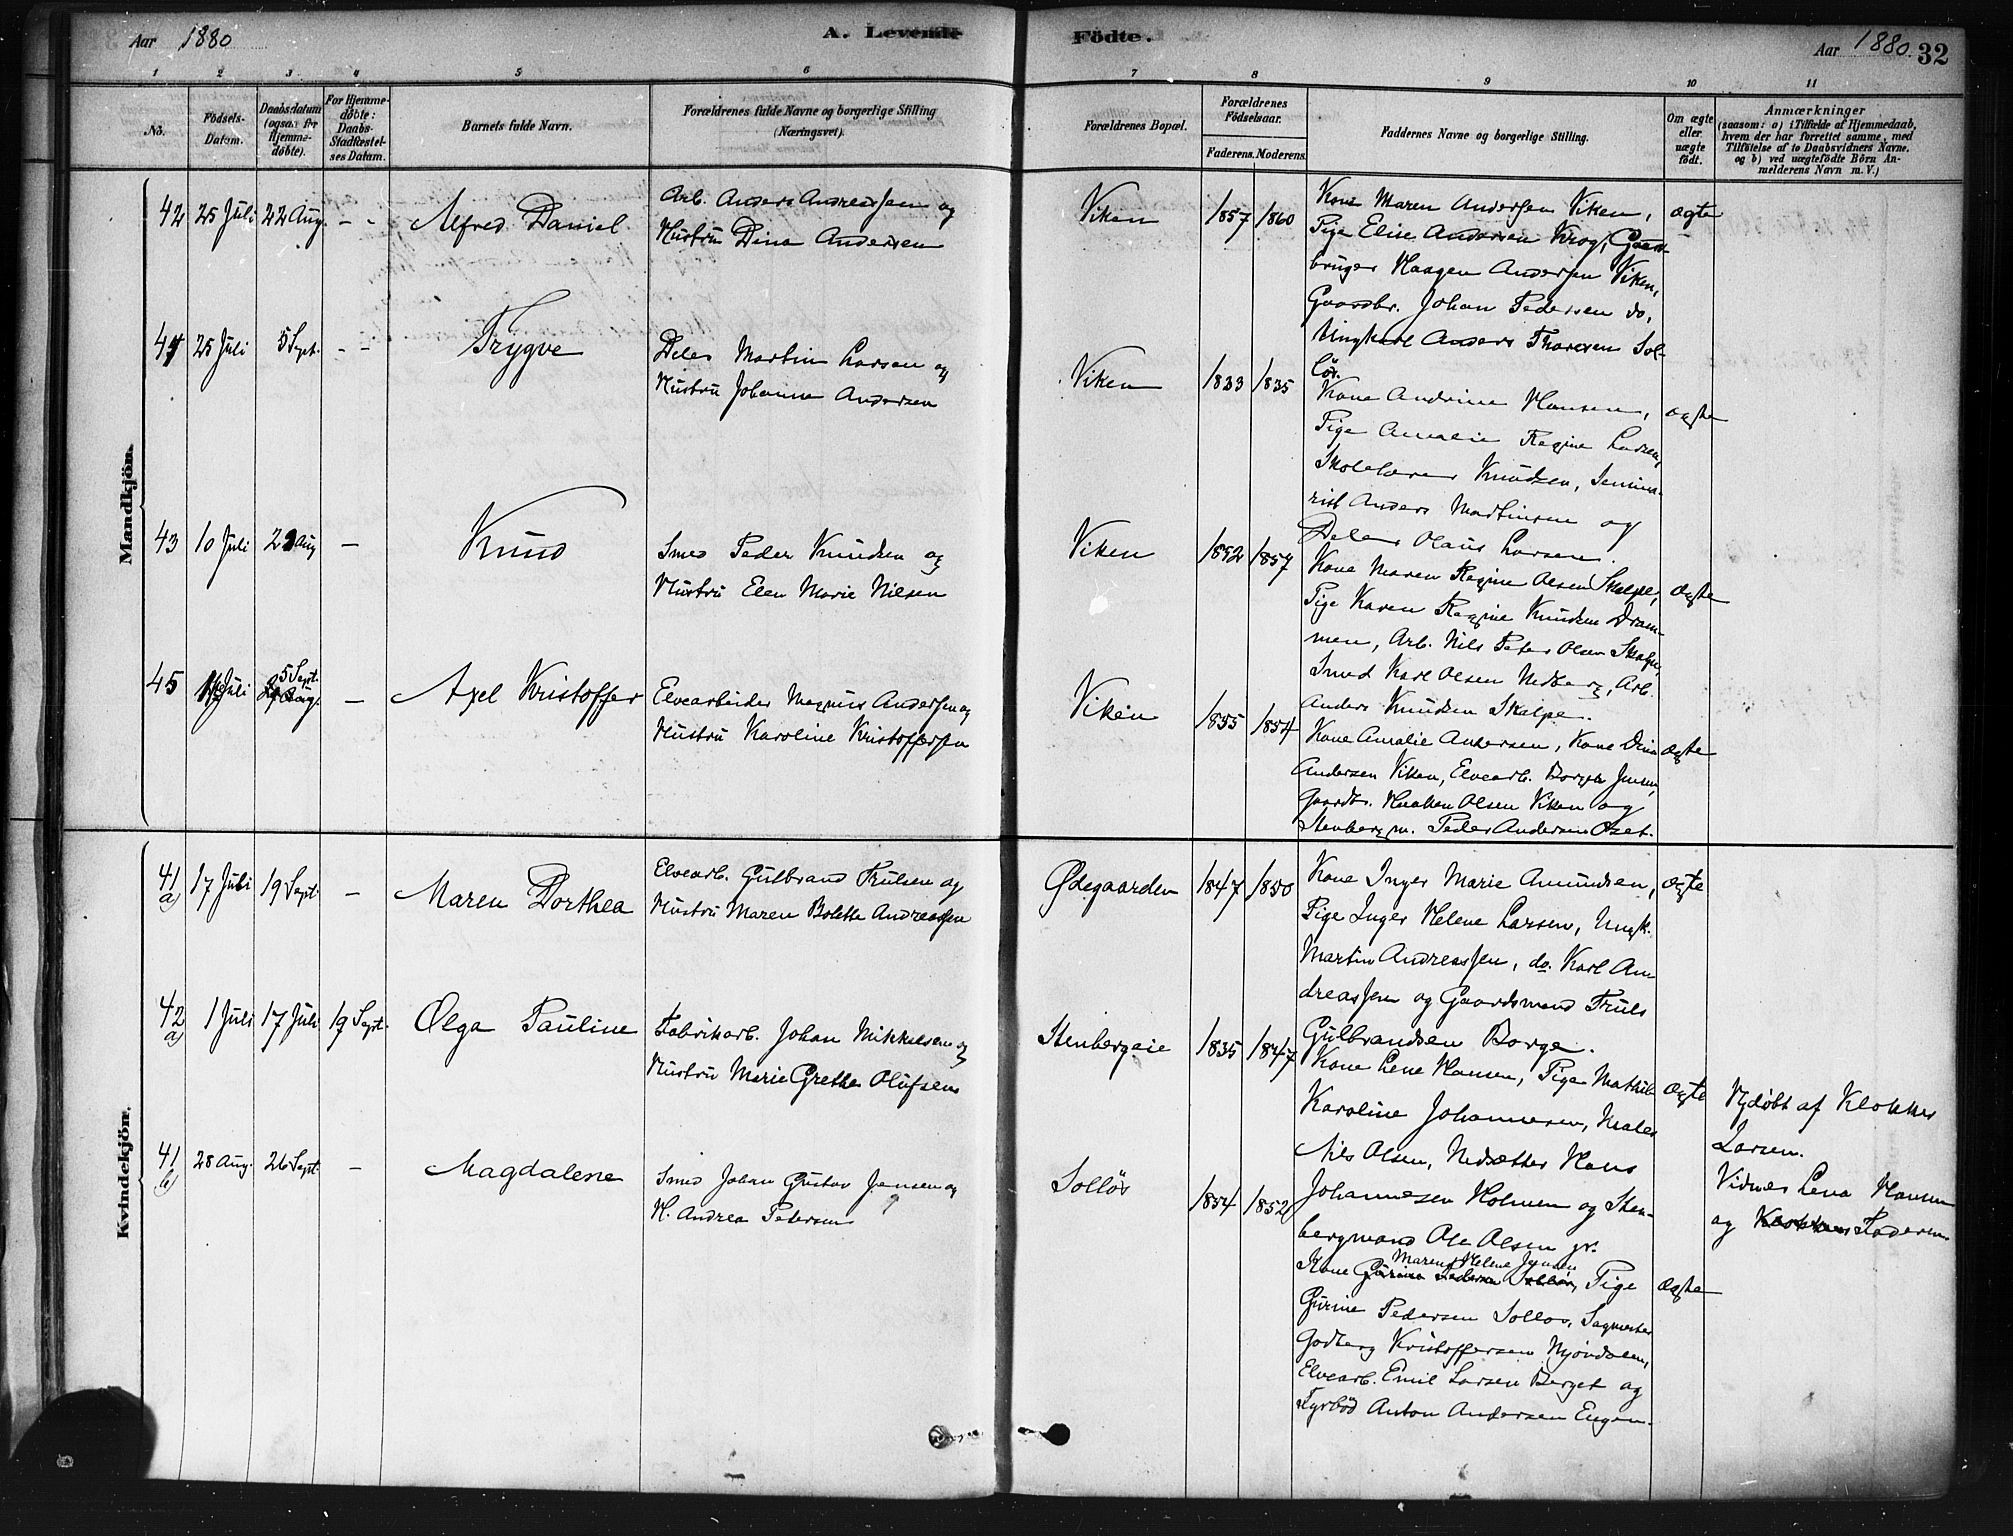 Aar 1880
A. Levende
Födte.
Aar 1880. 32
1 2 3 4 5 6 7 8 9 10 11
No.
Födsels-
Datum.
Daabsdatum
(ogsaa for
Hjemme-
döbte).
For Hjemme-
döbte:
Daabs-
Stadfæstel-
ses Datum.
Barnets fulde Navn.
Forældrenes fulde Navne og borgerlige Stilling
(Næringsvei).
Forældrenes Bopæl.
Forældrenes
Födselsaar.
Faderens. Moderens.
Faddernes Navne og borgerlige Stilling.
Om ægte
eller
uægte
födt.
Anmærkninger
(saasom: a) i Tilfælde af Hjemmedaab,
hvem der har forrettet samme, med
Tilföielse af to Daabsvidners Navne,
og b) ved uægtefödte Börn An-
melderens Navn m. V.)
Mandkjön.
42 25 Juli 22 Aug. - - Alfred Daniel
Arb. Anders Andreassen og
Hustru Dina Andersen
Viken 1857 1860
Kone Maren Andersen Viken,
Pige Elise Andersen Krog, Gaard-
bruger Haagen Andersen Viken,
Gaardbr. Johan Pedersen do,
Ungkarl Anders Thoresen Sol-
lör.
ægte
44 25 Juli 5 Sept. - - Trygve
Deler Martin Larsen og
Hustru Johanne Andersen
Viken 1833 1835
Kone Andrine Hansen,
Pige Amalie Regine Larsen,
Skolelærer Knudsen, Semina-
rist Anders Martinsen og
Deler Olaus Larsen.
ægte
43 10 Juli 22 Aug - Knud
Smed Peder Knudsen og
Hustru Elen Marie Nilsen
Viken 1852 1857
Kone Maren Regine Olsen Skalpe,
Pige Karen Regine Knudsen Dram-
men, Arb. Nils Peter Olsen Skalpe,
Smed Karl Olsen Nedberg, Arb.
Anders Knudsen Skalpe.
ægte
45 Juli 5 Sept. - Axel Kristoffer
Elvearbeider Magnus Andersen og
Hustru Karoline Kristoffersen
Viken 1855 1854
Kone Amalie Andersen, Kone Dina
Andersen Viken, Elvearb. Borger Jensen,
Gaardb. Haaken Olsen Viken og
Stenbergm. Peder Andersen Oset.
ægte
Kvindekjön.
41
a) 17 Juli 19 Sept. - Maren Dorthea
Elvearb. Gulbrand Trulsen og
Hustru Maren Bolette Andreassen
Ødegaarden 1847 1850
Kone Inger Marie Amundsen,
Pige Inger Helene Larsen, Ungk.
Martin Andreassen, do. Karl An-
dreassen og Gaardmand Truls
Gulbrandsen Borge.
ægte
42
a) 1 Juli 17 Juli 19 Sept. Olga Pauline
Fabrikarb. Johan Mikkelsen og
Hustru Marie Grethe Olufsen
Stenbergeie 1835 1847
Kone Lene Hansen, Pige Mathilde
Karoline Johannesen, Maler
Nils Olsen, Nedsætter Hans
Johannesen Holmen og Sten-
bergmand Ole Olsen jr.
ægte
Hjdøbt af Klokker
Larsen.
Vidner Lena Hansen
og Klokkeren Faderen
41
b) 28 Aug. 26 Sept. - Magdalene
Smed Johan Gustav Jensen og
H. Andrea Petersen
Sollös 1854 1852
Maren Helene Jensen
Kone Gurine Pedersen Sollös, Pige
Gurine Pedersen Sollos, Sagmester
Godberg Kristoffersen Mjöndalen,
Elvearb. Emil Larsen Berget og
Fyrböd Anton Andersen Engen.
ægte